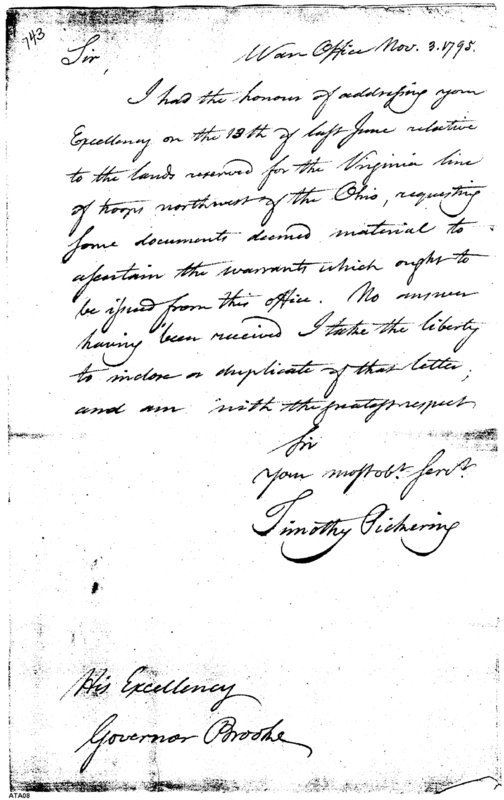 743
War Office Nov. 3. 1795.
Sir,
I had the honour of addressing your
Excellency on the 13th of last June relative
to the lands reserved for the Virginia line
of troops northwest of the Ohio, requesting
some documents deemed material to
ascertain the warrants which ought to
be issued from this office. No answer
having been received I take the liberty
to inclose a duplicate of that letter;
and am with the greatest respect
Sir
your most obt. servt.
Timothy Pickering
His Excellency
Governor Brooke
ATA08